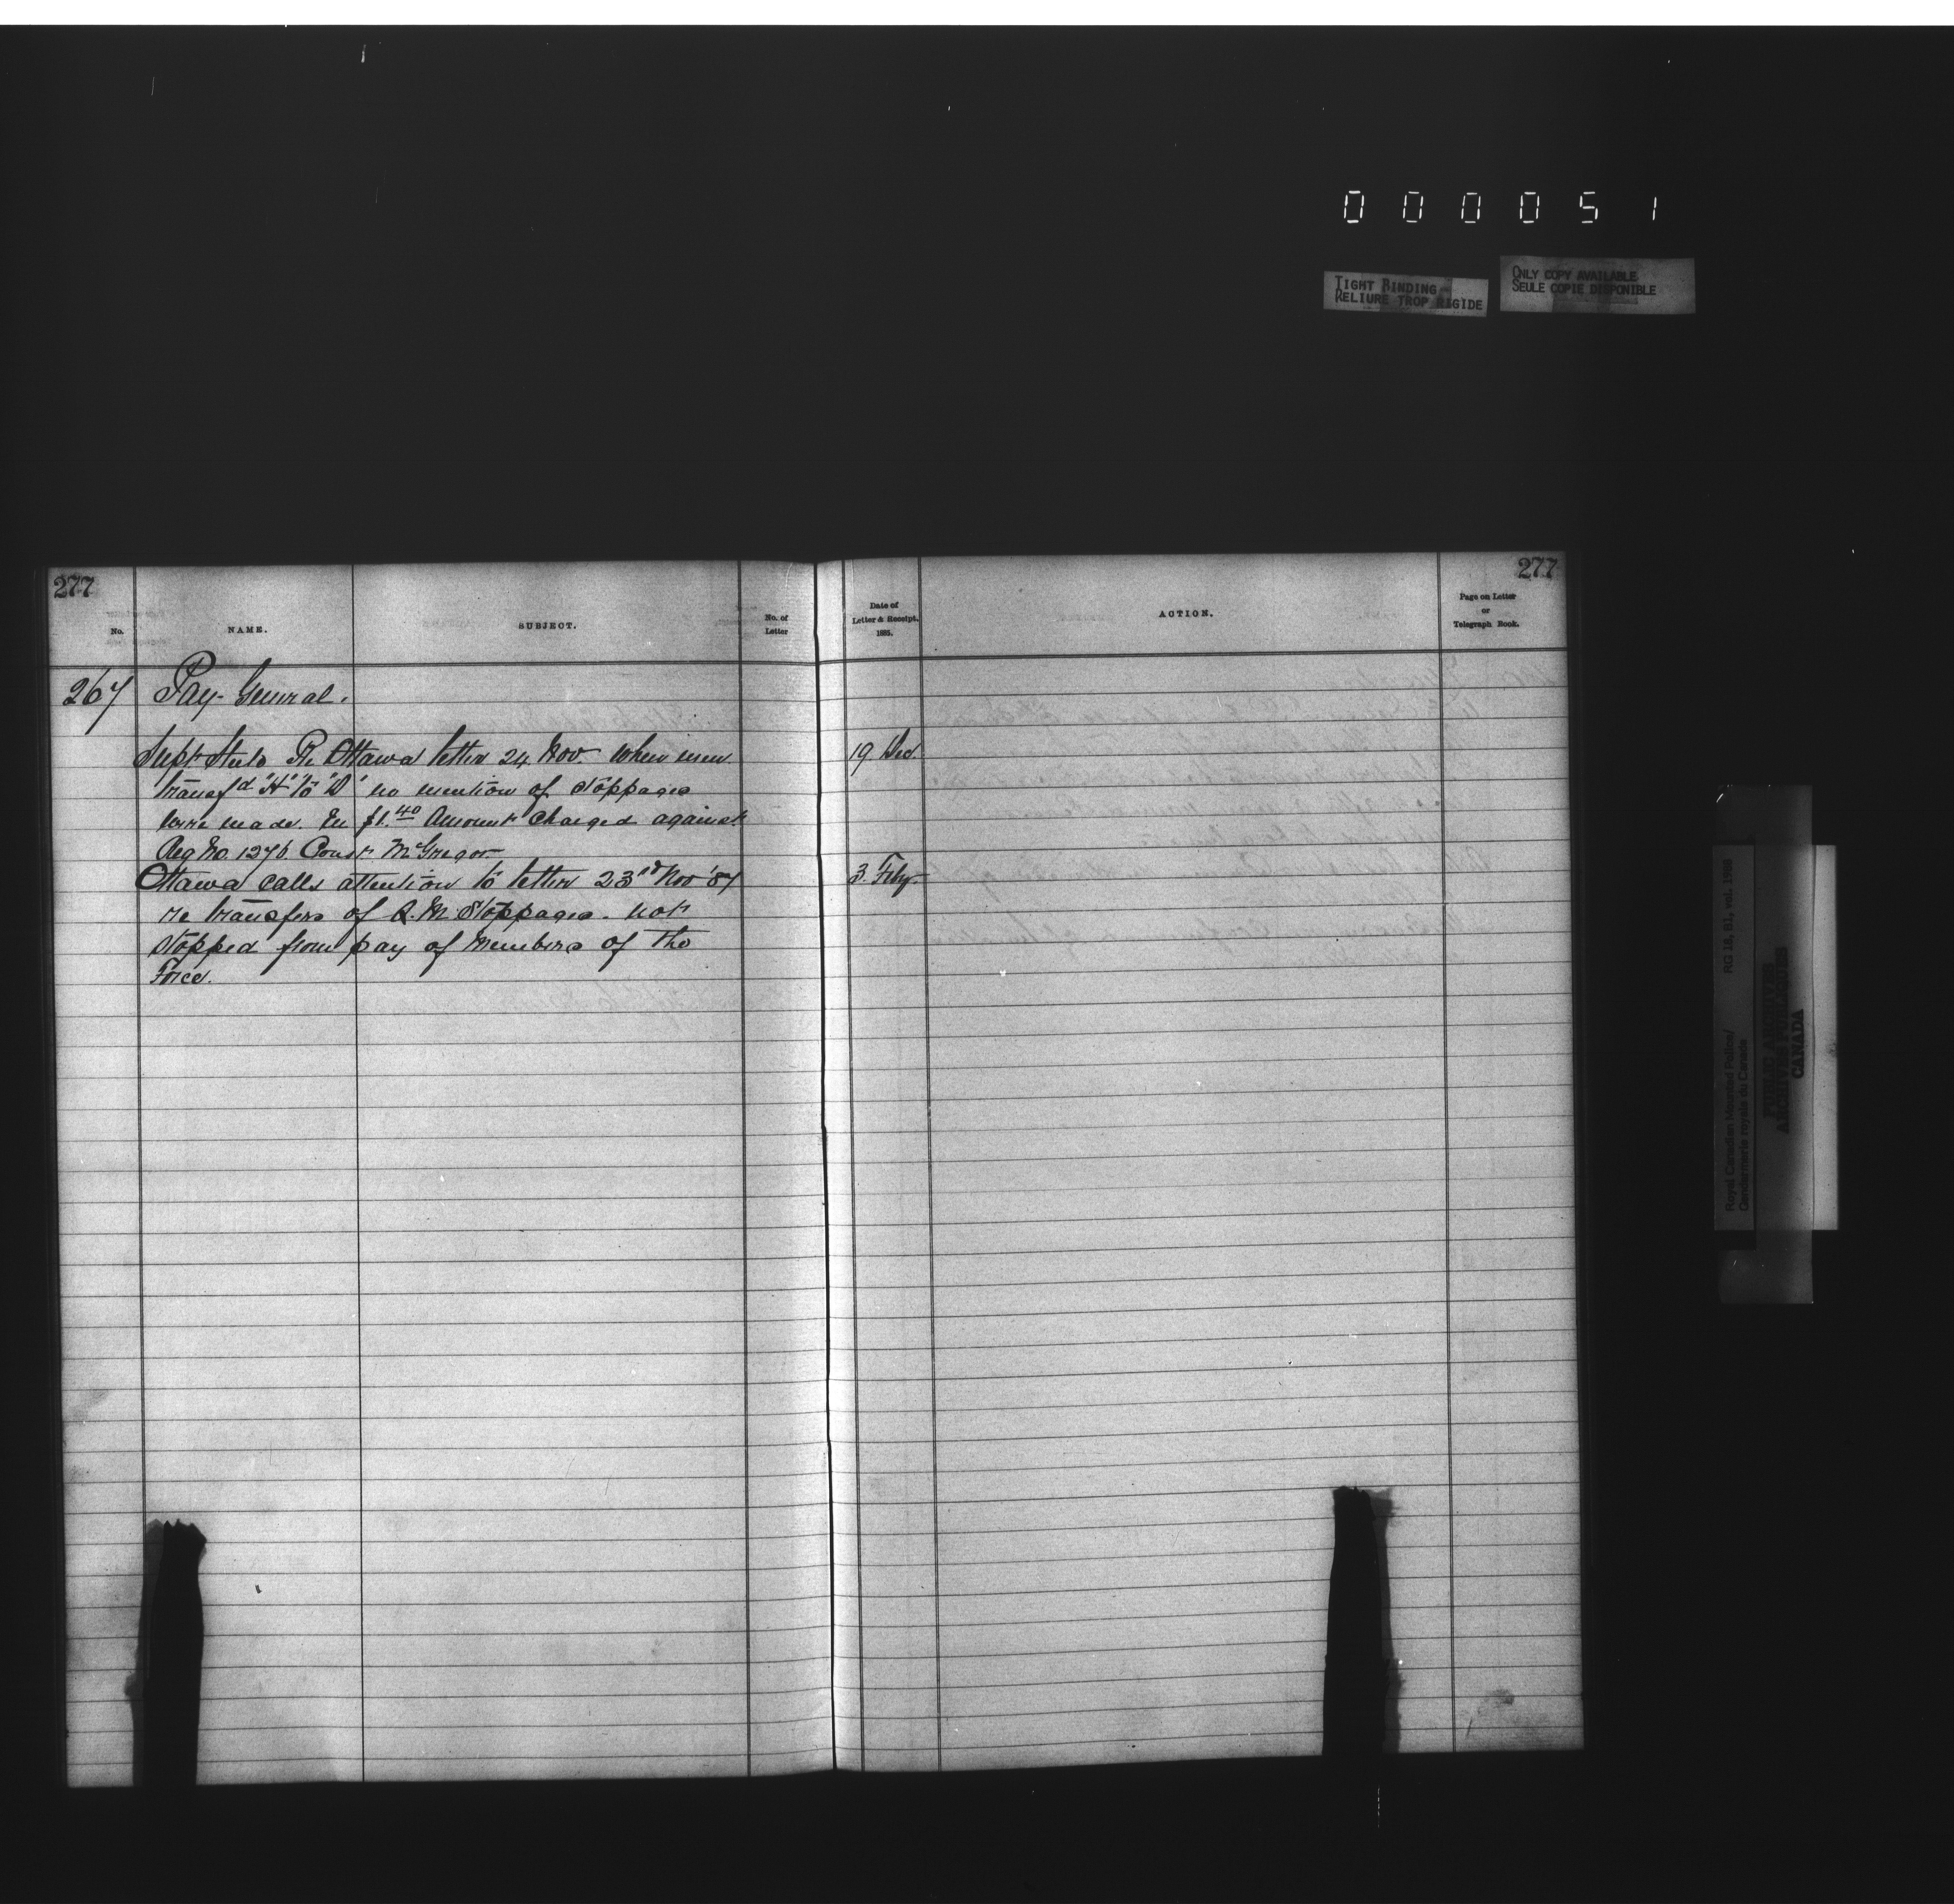 000051
TIGHT BINDING
RELIURE TROP RIGIDE
ONLY COPY AVAILABLE
SEULE COPIE DISPONIBLE
277
277
No.
NAME.
SUBJECT.
No. of
Letter
Date of
Letter & Receipt.
1885.
ACTION.
Page on Letter
or
Telegraph Book.
267 Pay-General.
Supt Steele Re Ottawa letter 24 Nov. When men 19 Dec.
transfd "H" to "D" no mention of stoppages
were made. En $1.40 Amount charged against
Reg No. 1276 Const McGregor
Ottawa calls attention to letter 23rd Nov '87 3. Feby.
re transfers of Q.M. Stoppages. not
stopped from pay of members of the
Force.
Royal Canadian Mounted Police/
Gendarmerie royale du Canada
RG 18, B1, vol.
PUBLIC ARCHIVES
ARCHIVES PUBLIQUES
CANADA